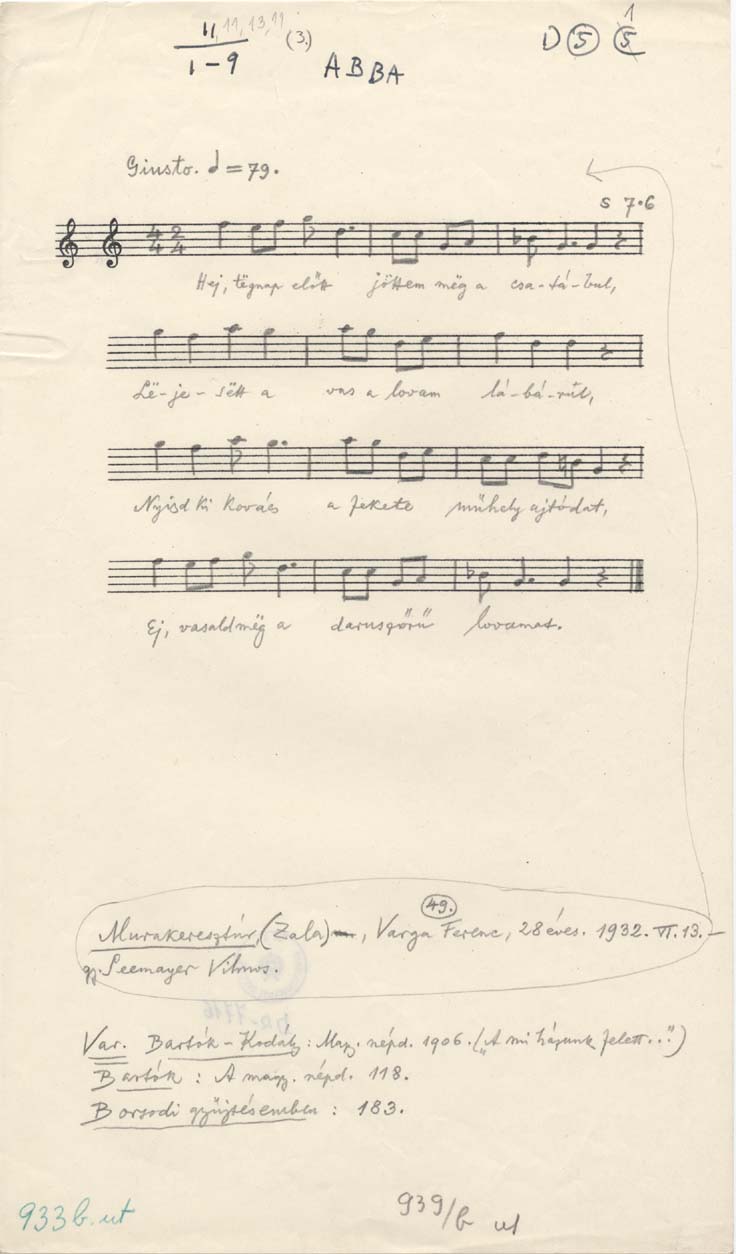 11, 11, 13, 11
1-9
(3.)
ABBA
D 5 5
1
Giusto. = 79.
s 7.6
4 2
4 4
Hej, tëgnap előtt jöttem mëg a csa-tá-bul,
Lë-je-sëtt a vas a lovam lá-bá-rúl,
Nyisd ki kovács a fekete műhely ajtódat,
Ej, vasald mëg a daruszőrű lovamat.
49.
Murakeresztúr, (Zala), Varga Ferenc, 28 éves. 1932. VI. 13. –
gy. Seemayer Vilmos.
Var. Bartók-Kodály: Magy. népd. 1906. („A mi házunk felett...")
Bartók: A magy. népd. 118.
Borsodi gyűjtésemben: 183.
933 b. ut
939/b ut